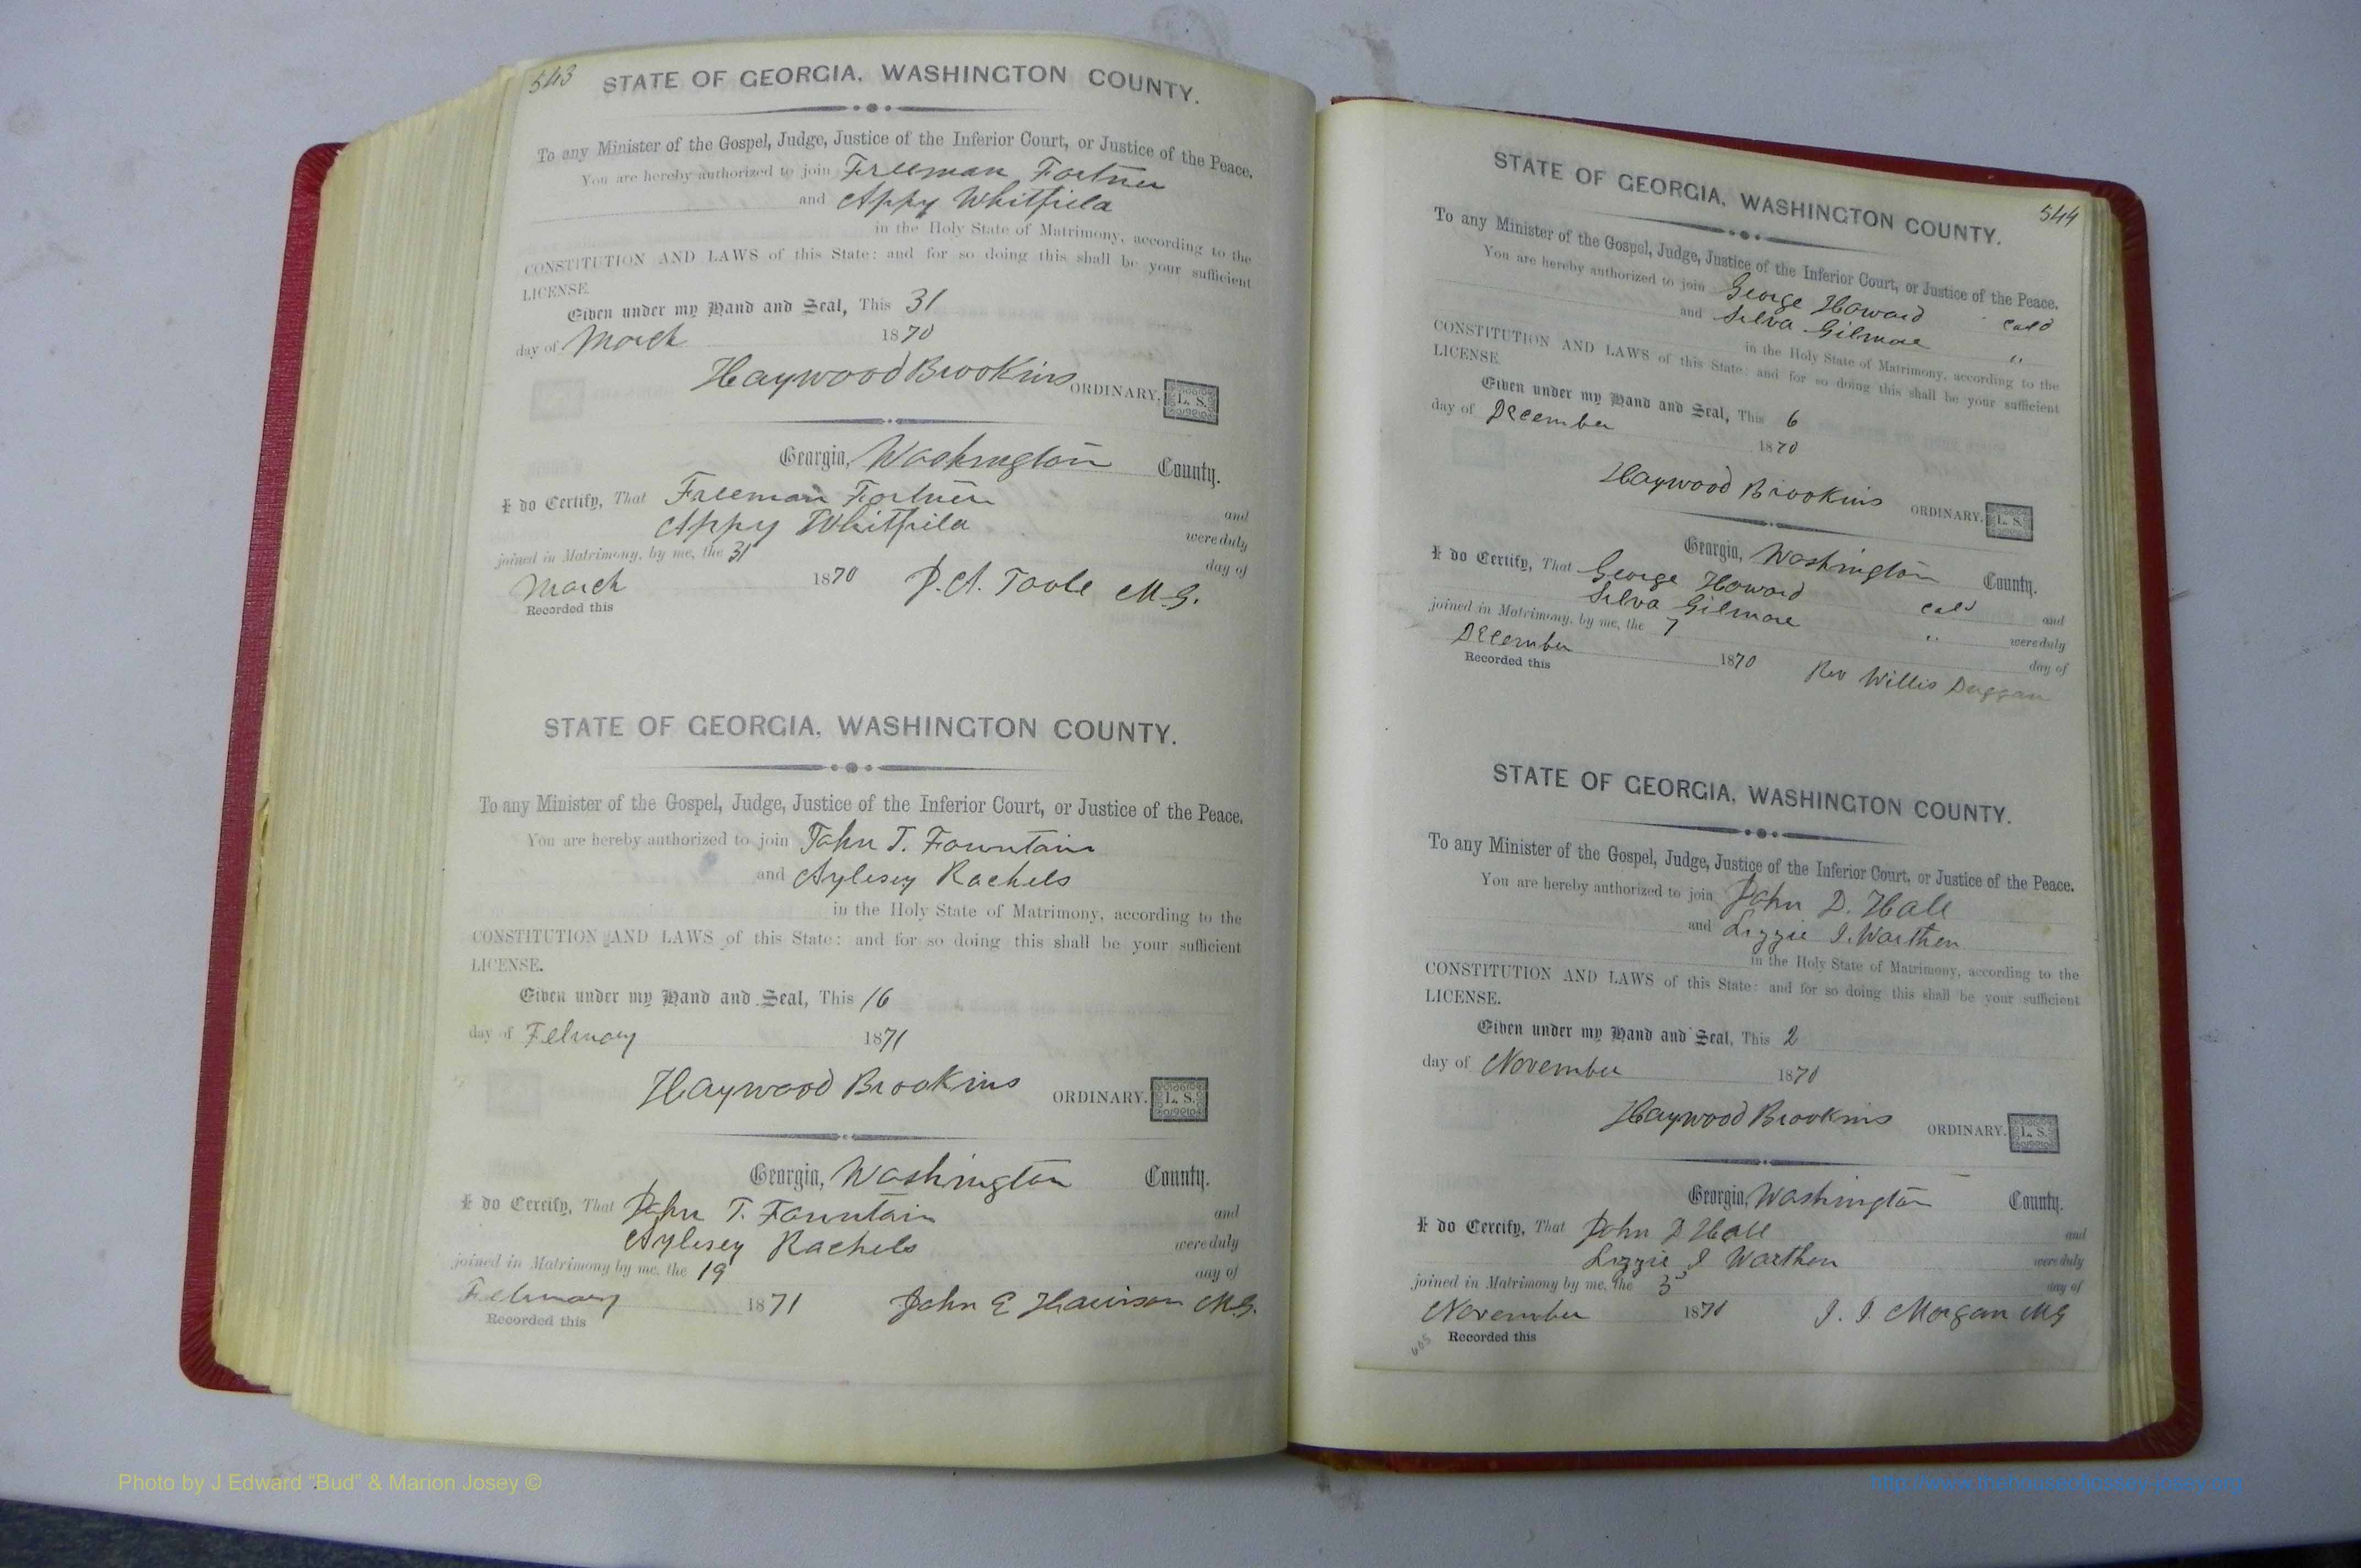 543
STATE OF GEORGIA, WASHINGTON COUNTY.
To any Minister of the Gospel, Judge, Justice of the Inferior Court, or Justice of the Peace.
You are hereby authorized to join Freeman Fortner
and Appy Whitfield
in the Holy State of Matrimony, according to the
CONSTITUTION AND LAWS of this State: and for so doing this shall be your sufficient
LICENSE.
Given under my Hand and Seal, This 31
day of March 1870
Haywood Brookins ORDINARY. L. S.
Georgia, Washington County.
I do Certify, That Freeman Fortner and
Appy Whitfield were duly
joined in Matrimony, by me, the 31 day of
March 1870 P. A. Toole M.G.
Recorded this
STATE OF GEORGIA, WASHINGTON COUNTY.
To any Minister of the Gospel, Judge, Justice of the Inferior Court, or Justice of the Peace.
You are hereby authorized to join John T. Fountain
and Aylesey Rachels
in the Holy State of Matrimony, according to the
CONSTITUTION AND LAWS of this State: and for so doing this shall be your sufficient
LICENSE.
Given under my Hand and Seal, This 16
day of February 1871
Haywood Brookins ORDINARY. L. S.
Georgia, Washington County.
I do Cercify, That John T. Fountain and
Aylesey Rachels were duly
joined in Matrimony by me, the 19 day of
February 1871 John E Harrison M.G.
Recorded this
544
STATE OF GEORGIA, WASHINGTON COUNTY.
To any Minister of the Gospel, Judge, Justice of the Inferior Court, or Justice of the Peace.
You are hereby authorized to join George Howard Cold
and Silva Gilmore "
in the Holy State of Matrimony, according to the
CONSTITUTION AND LAWS of this State: and for so doing this shall be your sufficient
LICENSE.
Given under my Hand and Seal, This 6
day of December 1870
Haywood Brookins ORDINARY. L. S.
Georgia, Washington County.
I do Certify, That George Howard Cold and
Silva Gilmore " were duly
joined in Matrimony, by me, the 7 day of
December 1870 Rev Willis Duggan
Recorded this
STATE OF GEORGIA, WASHINGTON COUNTY.
To any Minister of the Gospel, Judge, Justice of the Inferior Court, or Justice of the Peace.
You are hereby authorized to join John D. Hall
and Lizzie I. Warthen
in the Holy State of Matrimony, according to the
CONSTITUTION AND LAWS of this State: and for so doing this shall be your sufficient
LICENSE.
Given under my Hand and Seal, This 2
day of November 1870
Haywood Brookins ORDINARY. L. S.
Georgia, Washington County.
I do Cercify, That John D Hall and
Lizzie I Warthen were duly
joined in Matrimony by me, the 3 day of
November 1870 J. J. Morgan MG
Recorded this
Photo by J Edward “Bud” & Marion Josey ©